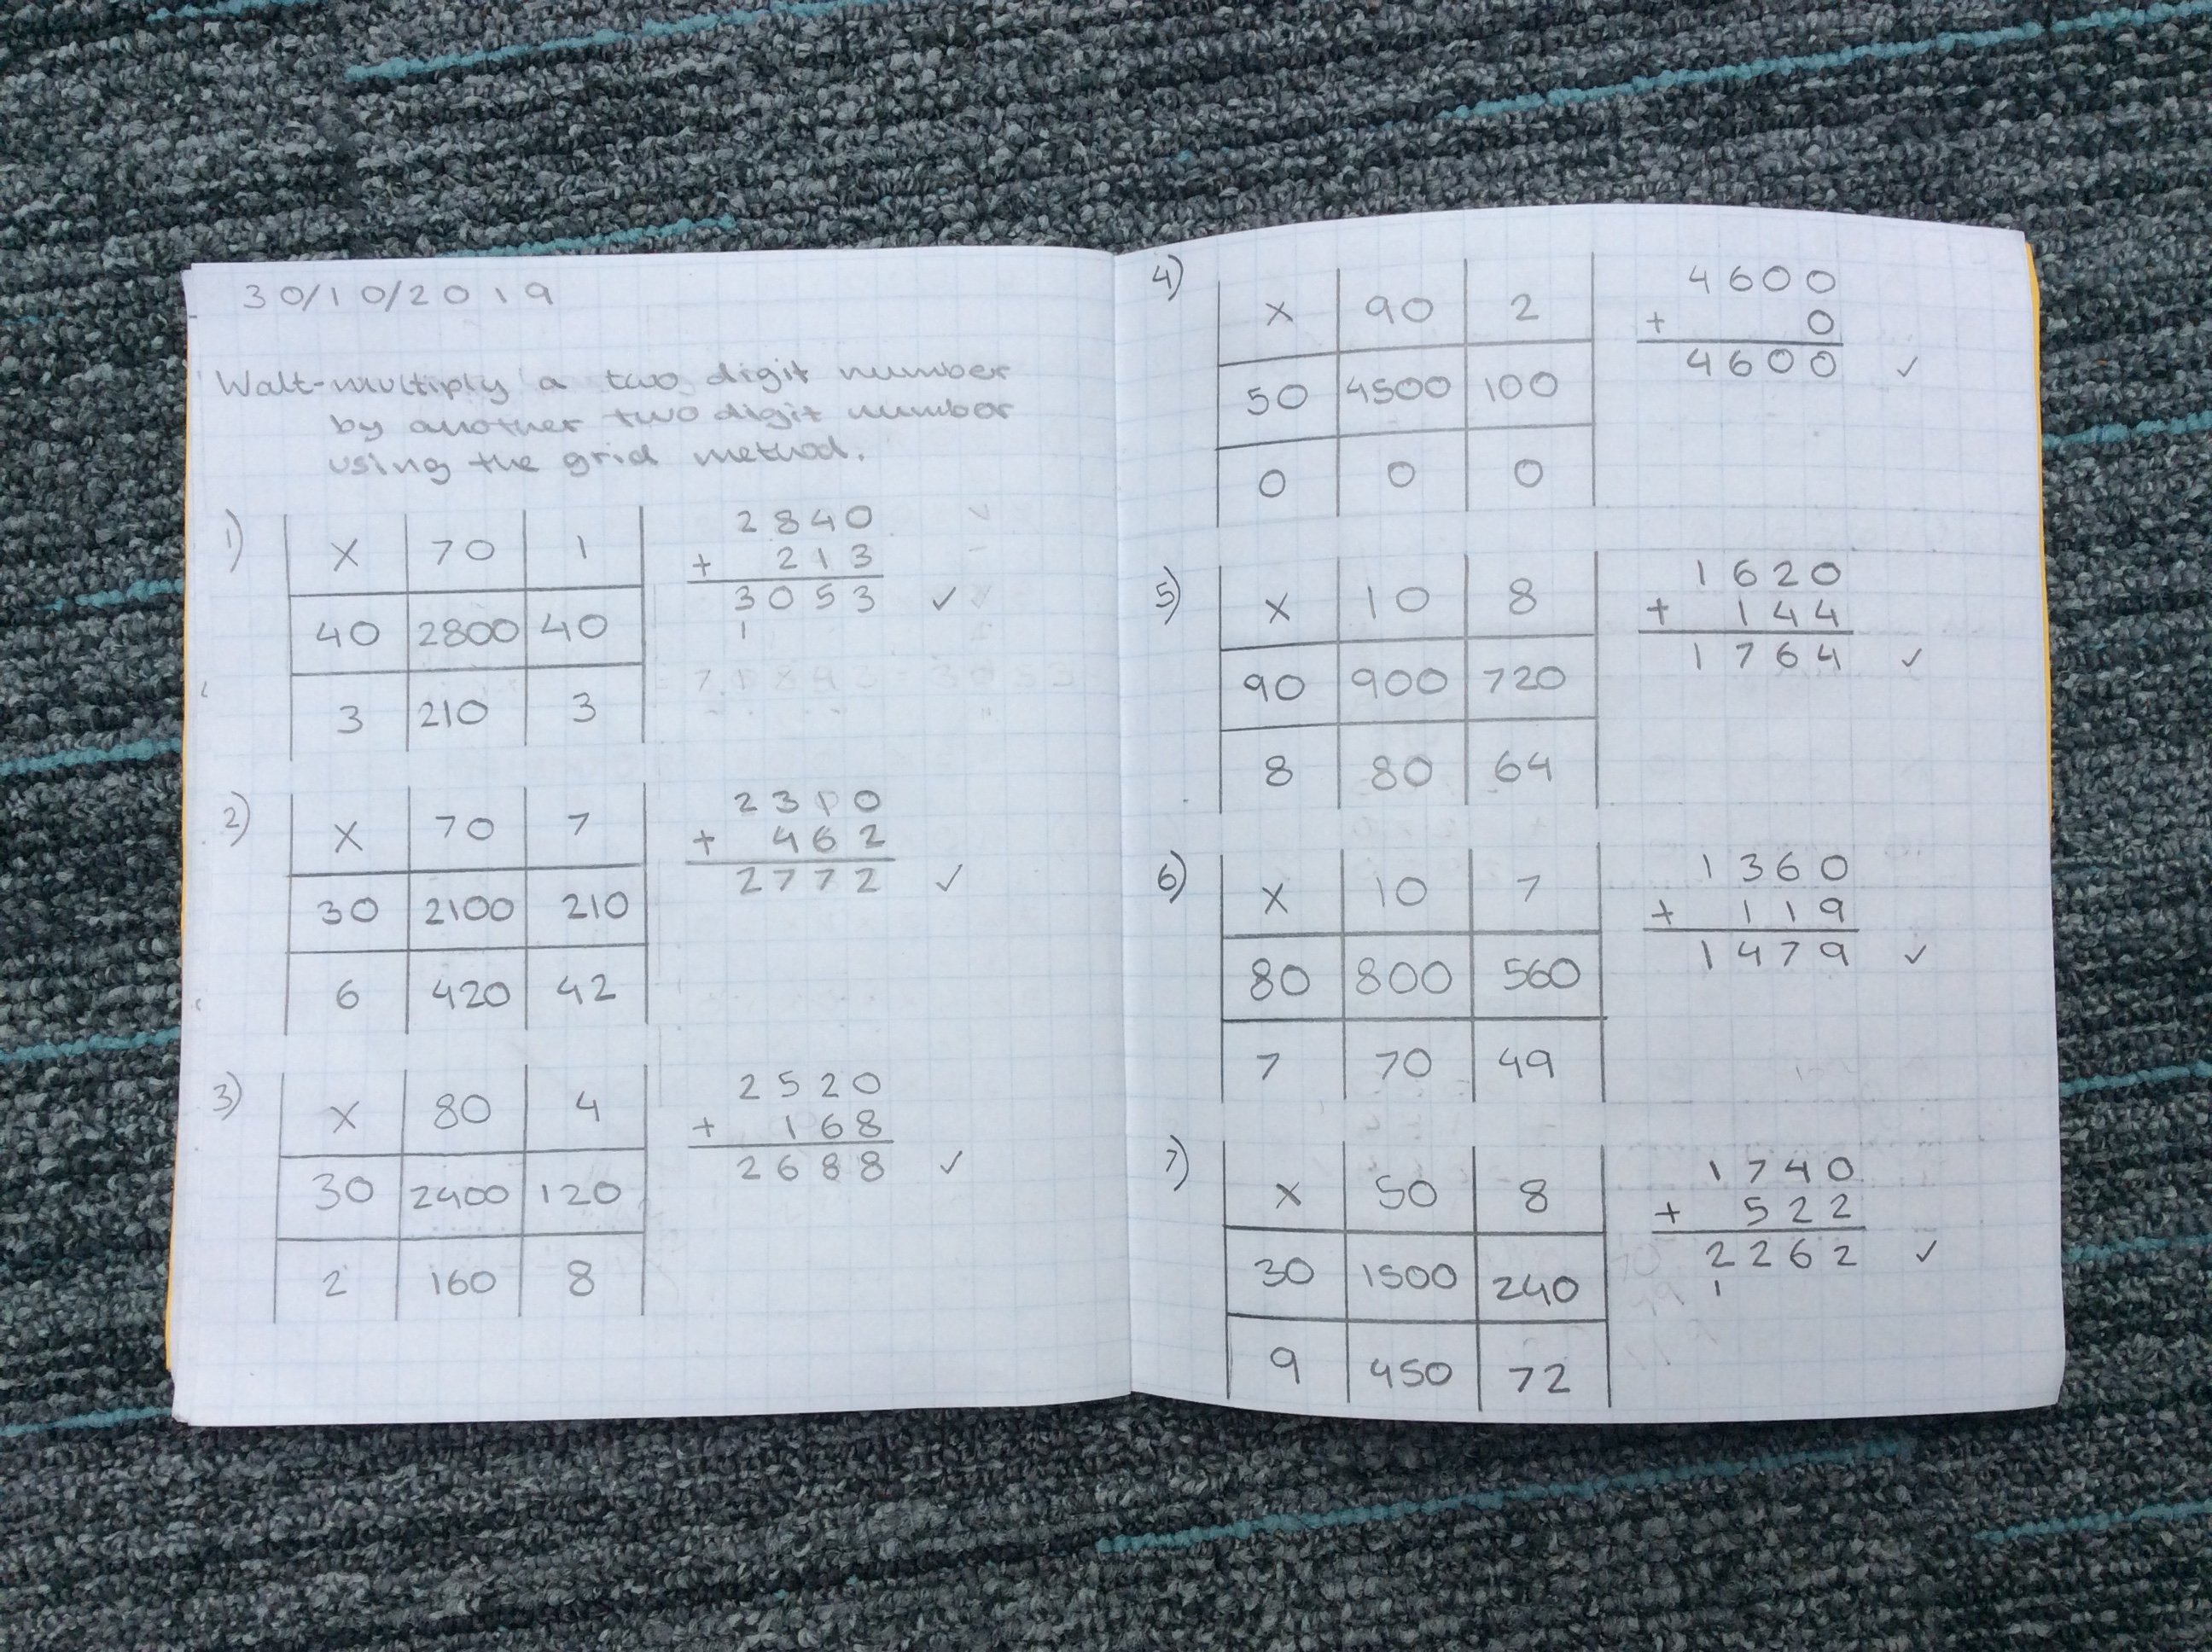 30/10/2019
Walt-multiply a two digit number
by another two digit number
using the grid method.
1)
x 70 1
40 2800 40
3 210 3
2840
+ 213
3053 ✓
1
2)
x 70 7
30 2100 210
6 420 42
2310
+ 462
2772 ✓
3)
x 80 4
30 2400 120
2 160 8
2520
+ 168
2688 ✓
4)
x 90 2
50 4500 100
0 0 0
4600
+ 0
4600 ✓
5)
x 10 8
90 900 720
8 80 64
1620
+ 144
1764 ✓
6)
x 10 7
80 800 560
7 70 49
1360
+ 119
1479 ✓
7)
x 50 8
30 1500 240
9 450 72
1740
+ 522
2262 ✓
1